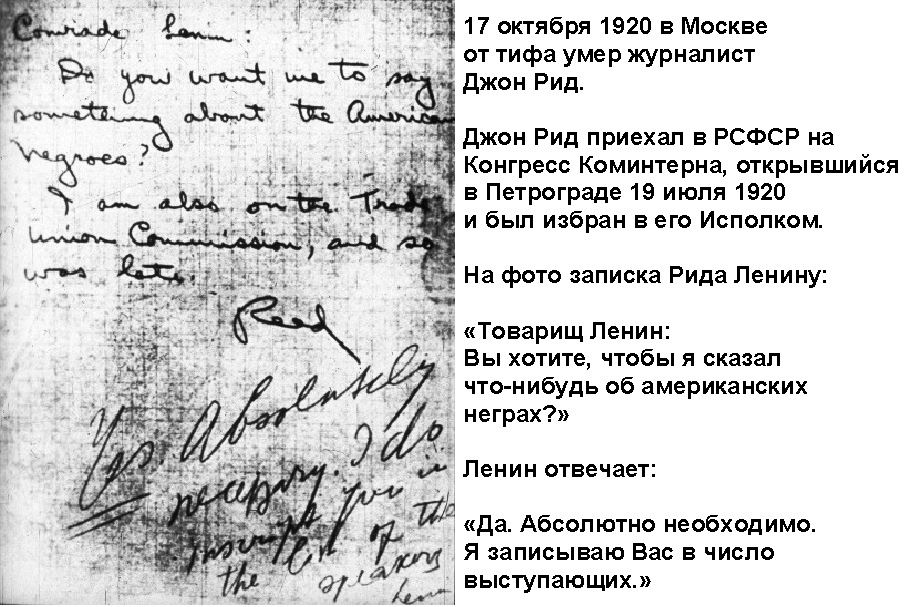 Comrade Lenin:
Do you want me to say
something about the American
negroes?
I am also on the Trade
Union Commission, and so
was late.
Reed
Yes. Absolutely
necessary. I do
inscript you in
the list of the
speakers
Lenin
17 октября 1920 в Москве
от тифа умер журналист
Джон Рид.
Джон Рид приехал в РСФСР на
Конгресс Коминтерна, открывшийся
в Петрограде 19 июля 1920
и был избран в его Исполком.
На фото записка Рида Ленину:
«Товарищ Ленин:
Вы хотите, чтобы я сказал
что-нибудь об американских
неграх?»
Ленин отвечает:
«Да. Абсолютно необходимо.
Я записываю Вас в число
выступающих.»